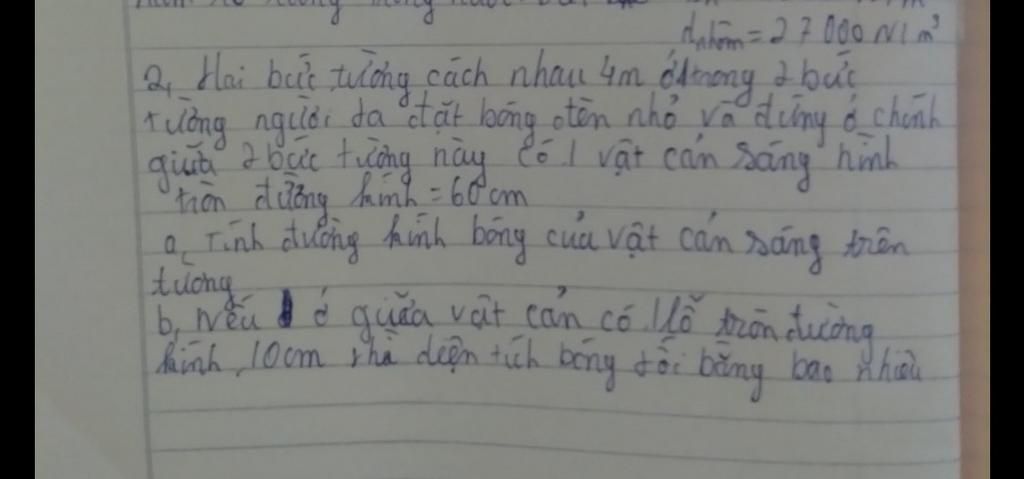 d nhôm = 27 000 N/m³
2, Hai bức tường cách nhau 4m ở trong 2 bức
tường người ta đặt bóng đèn nhỏ và đúng ở chính
giữa 2 bức tường này có 1 vật cản sáng hình
tròn đường kính = 60 cm
a, Tính đường kính bóng của vật cản sáng trên
tường
b, Nếu ở giữa vật cản có 1 lỗ tròn đường
kính 10cm thì diện tích bóng tối bằng bao nhiêu